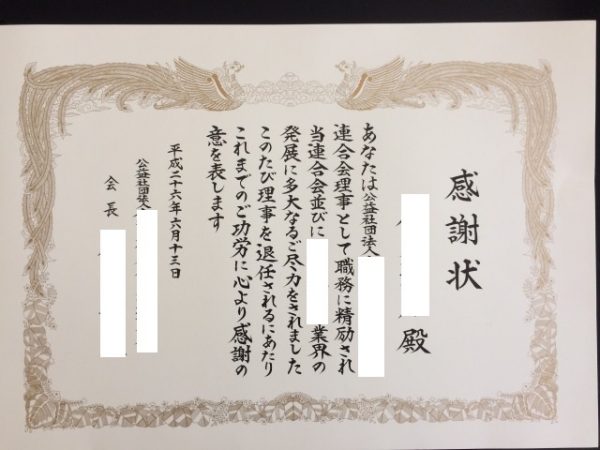 感謝状
殿
あなたは公益社団法人
連合会理事として職務に精励され
当連合会並びに業界の
発展に多大なるご尽力をされました
このたび理事を退任されるにあたり
これまでのご功労に心より感謝の
意を表します
平成二十六年六月十三日
公益社団法人
会長